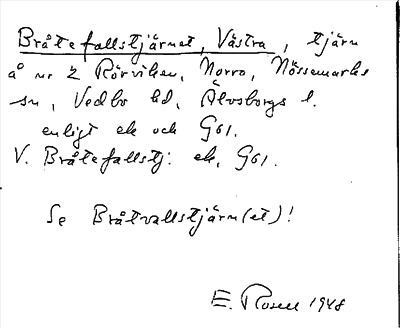 Bråtefallstjärnet, Västra, tjärn
å nr 2 Rörviken, Norra, Nössemarks
sn, Vedbo hd, Älvsborgs l.
enligt ek och G61.
V. Bråtefallstj: ek, G61.
Se Bråtvallstjärn(et)!
E. Rosell 1948